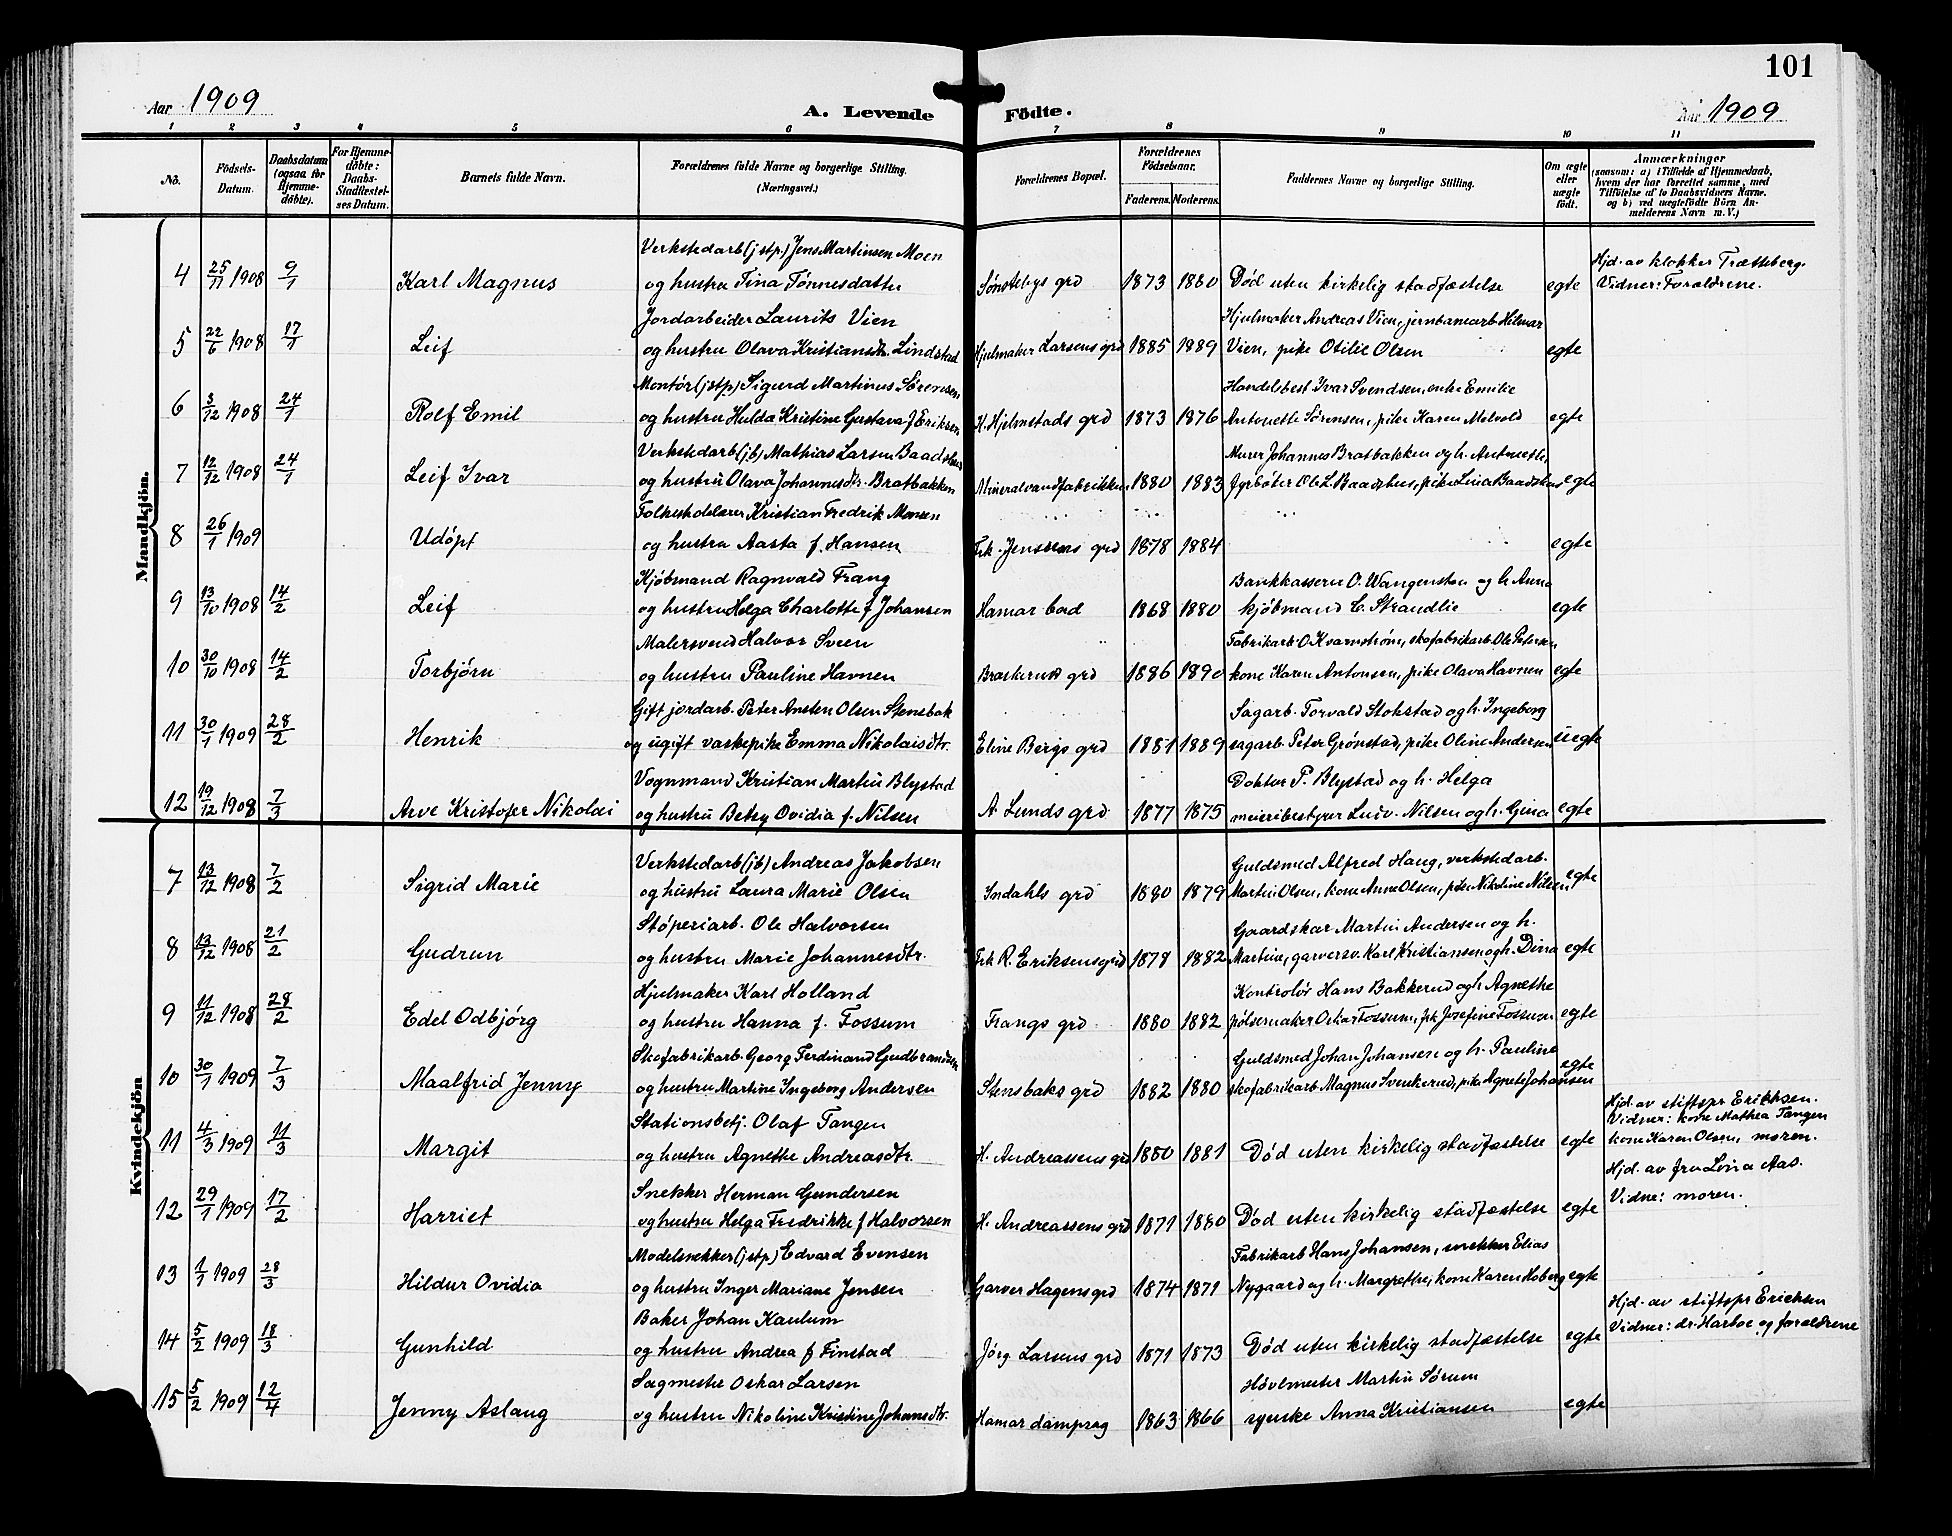 101
Aar 1909
A. Levende Födte.
Aar 1909
1 2 3 4 5 6 7 8 9 10 11
Nö. Födsels-Datum. Daabsdatum (ogsaa for Hjemme-döbte). For Hjemme-döbte: Daabs-Stadfæstel-ses Datum. Barnets fulde Navn. Forældrenes fulde Navne og borgerlige Stilling. (Næringsvei.) Forældrenes Bopæl. Forældrenes Födselsaar. Faderens. Moderens. Faddernes Navne og borgerlige Stilling. Om ægte eller uægte födt. Anmærkninger (saasom: a) i Tilfælde af Hjemmedaab, hvem der har forrettet samme, med Tilföielse af to Daabsvidners Navne, og b) ved uægtefödte Börn An-melderens Navn m. V.)
Mandkjön.
Verkstedarb (jstp.) Jens Martinsen Moen Hjd. av klokker Trætteberg.
4 25/11 1908 9/1 Karl Magnus og hustru Tina Tønnesdatter Sønstebys grd 1873 1880 Død uten kirkelig stadfæstelse egte Vidner: Forældrene.
Jordarbeider Laurits Vien Hjulmaker Andreas Vien, jernbanearb Hilmar
5 22/6 1908 17/1 Leif og hustru Olava Kristiansdtr. Lindstad Hjulmaker Larsens grd 1885 1889 Vien, pike Otilie Olsen egte
Montör (jstp) Sigurd Martinus Sörensen Handelsbest Ivar Svendsen, enke Emilie
6 3/12 1908 24/1 Rolf Emil og hustru Hulda Kristine Gustava f Eriksen K. Hjelmstads grd 1873 1876 Antonette Sörensen, pike Karen Melvold egte
Verkstedarb (jb) Mathias Larsen Baadshus Murer Johannes Bratbakken og h. Antonette,
7 12/12 1908 24/1 Leif Ivar og hustru Olava Johannesdtr. Bratbakken Mineralvandfabrikken 1880 1883 fyrböter Ole L. Baadshus, pike Lina Baadshus egte
Folkeskolelærer Kristian Fredrik Monsen
8 26/1 1909 Udöpt og hustru Aasta f. Hansen Frk. Jenssens grd 1878 1884 egte
Kjöbmand Ragnvald Frang Bankkasserer O. Wangensten og h. Anna
9 13/10 1908 14/2 Leif og hustru Helga Charlotte f. Johansen Hamar bad 1868 1880 kjöbmand C. Strandlie egte
Malersvend Halvor Sveen Fabrikarb. O Kvarnström, skofabrikarb. Ole Petersen
10 30/10 1908 14/2 Torbjörn og hustru Pauline Havnen Braskeruds grd 1886 1890 kone Karen Antonsen, pike Olava Havnen egte
Gift jordarb. Peter Ansten Olsen Stensbak Sagarb. Torvald Stokstad og h. Ingeborg
11 30/1 1909 28/2 Henrik og ugift vaskepike Emma Nikolaisdtr. Eline Bergs grd 1881 1889 sagarb. Peter Grönstad, pike Oline Andersen uegte
Vognmand Kristian Martin Blystad Doktor P. Blystad og h. Helga
12 19/12 1908 7/3 Arve Kristofer Nikolai og hustru Betsy Ovidia f. Nilsen A Lunds grd 1877 1875 meieribestyrer Ludv. Nilsen og h. Gina egte
Kvindekjön
Verkstedarb (jb) Andreas Jakobsen Guldsmed Alfred Haug, verkstedarb.
7 13/12 1908 7/2 Sigrid Marie og hustru Laura Marie Olsen Indahls grd 1880 1879 Martin Olsen, kone Anne Olsen, pike Nikoline Nilsen egte
Stöperiarb. Ole Halvorsen Gaardskar Martin Andersen og h.
8 13/12 1908 21/2 Gudrun og hustru Marie Johannesdtr. Frk R. Eriksens grd 1878 1882 Martine, garversv. Karl Kristiansen og h. Dina egte
Hjulmaker Karl Holland Kontrolör Hans Bakkerud og h Agnethe
9 11/12 1908 28/2 Edel Odbjörg og hustru Hanna f. Fossum Frangs grd 1880 1882 pölsemaker Oskar Fossum, pk Josefine Fossum egte
Skofabrikarb. Georg Ferdinand Gudbrandsen Guldsmed Johan Johansen og h. Pauline
10 30/1 1909 7/3 Maalfrid Jenny og hustru Martine Ingeborg Andersen Stensbaks grd 1882 1880 skofabrikarb Magnus Svenkerud, pike Agnete Johansen egte
Stationsbetj. Olaf Tangen Hjd. av stiftspr Eriksen.
Vidner: kone Mathea Tangen
11 4/3 1909 11/3 Margit og hustru Agnethe Andreasdtr. H. Andreassens grd 1880 1881 Død uten kirkelig stadfæstelse egte kone Karen Olsen, moren.
Snekker Herman Gundersen Hjd. av fru Lina Aas.
12 29/1 1909 17/2 Harriet og hustru Helga Fredrikke f Halvorsen H. Andreassens grd 1871 1880 Død uten kirkelig stadfæstelse egte Vidne: moren.
Modelsnekker (jstp) Edvard Evensen Fabrikarb Hans Johansen, snekker Elias
13 1/1 1909 28/3 Hildur Ovidia og hustru Inger Mariane Jensen Garver Hagens grd 1874 1871 Nygaard og h. Margrethe, kone Karen Moberg egte
Baker Johan Kaulum Hjd. av stiftspr Ericksen
14 5/2 1909 18/3 Gunhild og hustru Andrea f Finstad Jörg Larsens grd 1871 1873 Død uten kirkelig stadfæstelse egte Vidner: dr. Harboe og forældrene
Sagmester Oskar Larsen Hövlmester Martin Sörum
15 5/2 1909 12/4 Jenny Aslaug og hustru Nikoline Kristine Johansdtr. Hamar dampsag 1863 1866 syerske Anna Kristiansen egte